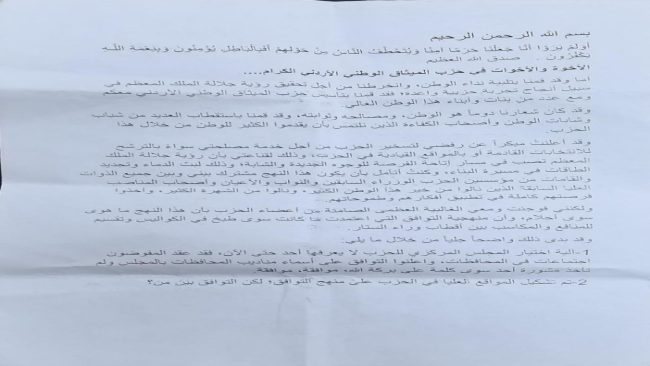 بسم الله الرحمن الرحيم
أولم يروا أنا جعلنا حرماً آمناً ويتخطف الناس من حولهم أفبالباطل يؤمنون وبنعمة الله
يكفرون . صدق الله العظيم
الأخوة والأخوات في حزب الميثاق الوطني الأردني الكرام....
أما وقد قمنا بتلبية نداء الوطن، وانخرطنا من أجل تحقيق رؤية جلالة الملك المعظم في
سبيل انجاح تجربة حزبية واعدة؛ فقد قمنا بتأسيس حزب الميثاق الوطني الأردني معكم
مع عدد من بنات وأبناء هذا الوطن الغالي.
وقد كان شعارنا دوماً هو الوطن، ومصالحه وثوابته، وقد قمنا باستقطاب العديد من شباب
وشابات الوطن وأصحاب الكفاءة الذين نلتمس بأن يقدموا الكثير للوطن من خلال هذا
الحزب.
وقد أعلنت مبكراً عن رفضي لتسخير الحزب من أجل خدمة مصلحتي سواءً بالترشح
للانتخابات القادمة أو بالمواقع القيادية في الحزب، وذلك لقناعتي بأن رؤية جلالة الملك
المعظم تصب في مسار إتاحة الفرصة للوجوه الجديدة والشابة؛ وذلك لبث الدماء وتجديد
الطاقات في مسيرة البناء، وكنت أتأمل بأن يكون هذا النهج مشترك بيني وبين جميع الذوات
والقامات من مؤسسين الحزب الوزراء السابقين والنواب والأعيان وأصحاب المناصب
العليا السابقة الذين نالوا من خير هذا الوطن الكثير، ونالوا من الشهرة الكثير، وأخذوا
فرصتهم كاملة في تطبيق أفكارهم وطموحاتهم.
ولكنني فوجئت ومعي الغالبية العظمى الصامتة من أعضاء الحزب بأن هذا النهج ما هوى
سوى أحلام، وأن منهجية التوافق التي اعتمدت ما كانت سوى طبخ في الكواليس وتقسيم
للمنافع والمكاسب بين أقطاب وراء الستار.
وقد بدى ذلك واضحاً جلياً من خلال ما يلي:
1-آلية اختيار المجلس المركزي للحزب لا يعرفها أحد حتى الآن، فقد عقد المفوضون
اجتماعات في المحافظات، واعلنوا التوافق على أسماء مناديب المحافظات بالمجلس ولم
تأخذ مشورة أحد سوى كلمة على بركة الله، موافقة، موافقة.
2-تم تشكيل المواقع العليا في الحزب على منهج التوافق؛ لكن التوافق بين من؟